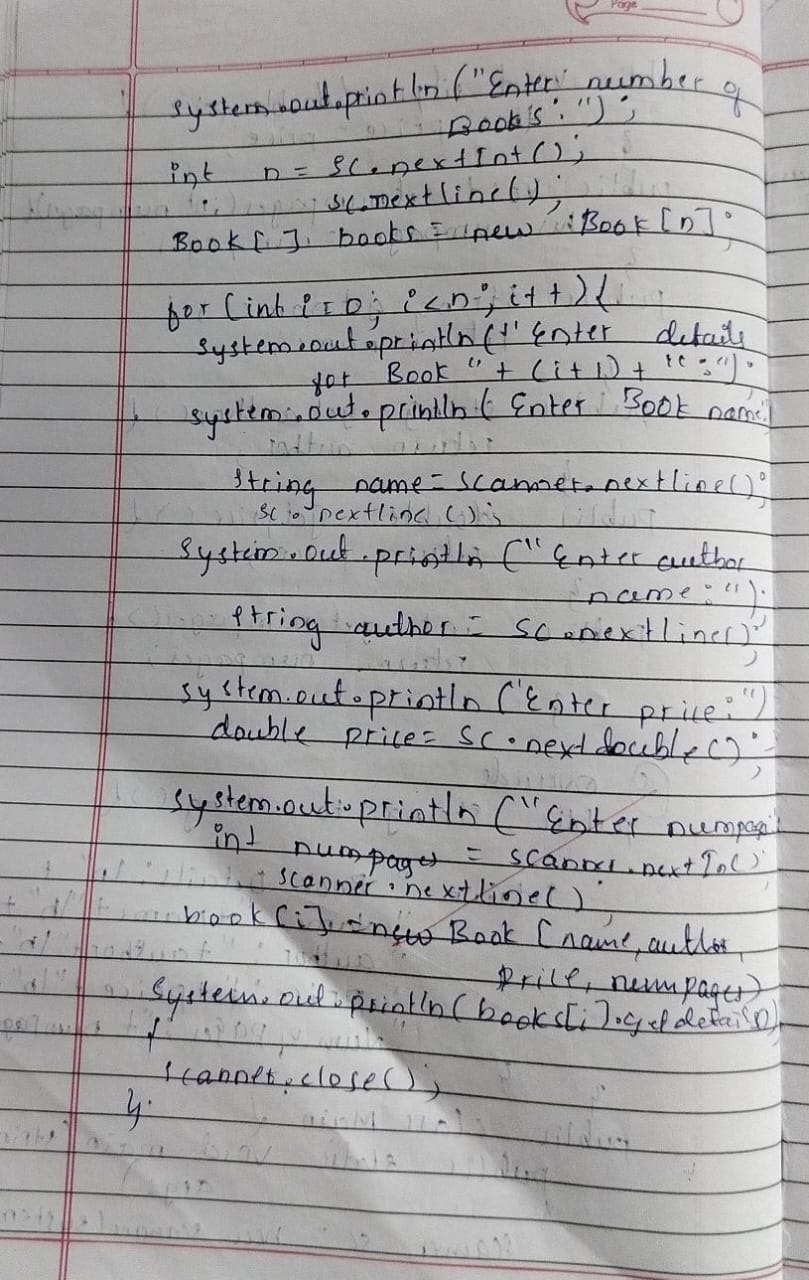 Page
System.out.println ("Enter number of
Books:");
int n = sc.nextInt();
sc.nextline();
Book[ ] books = new Book[n];
for (int i=0; i<n; i++){
System.out.println ("Enter details
for Book " + (i+1) + ":");
system.out.println ( Enter Book name
string name = scanner.nextline();
sc.nextline();
System.out.println ("Enter author
name:").
string author = sc.nextline();
system.out.println ("Enter price:")
double price = sc.nextdouble();
system.out.println ("Enter numpage
int numpages = scanner.nextIn()
scanner.nextline()
book[i] = new Book (name, author,
price, numpages)
System.out.println(books[i].getdetails()
}
scanner.close();
}